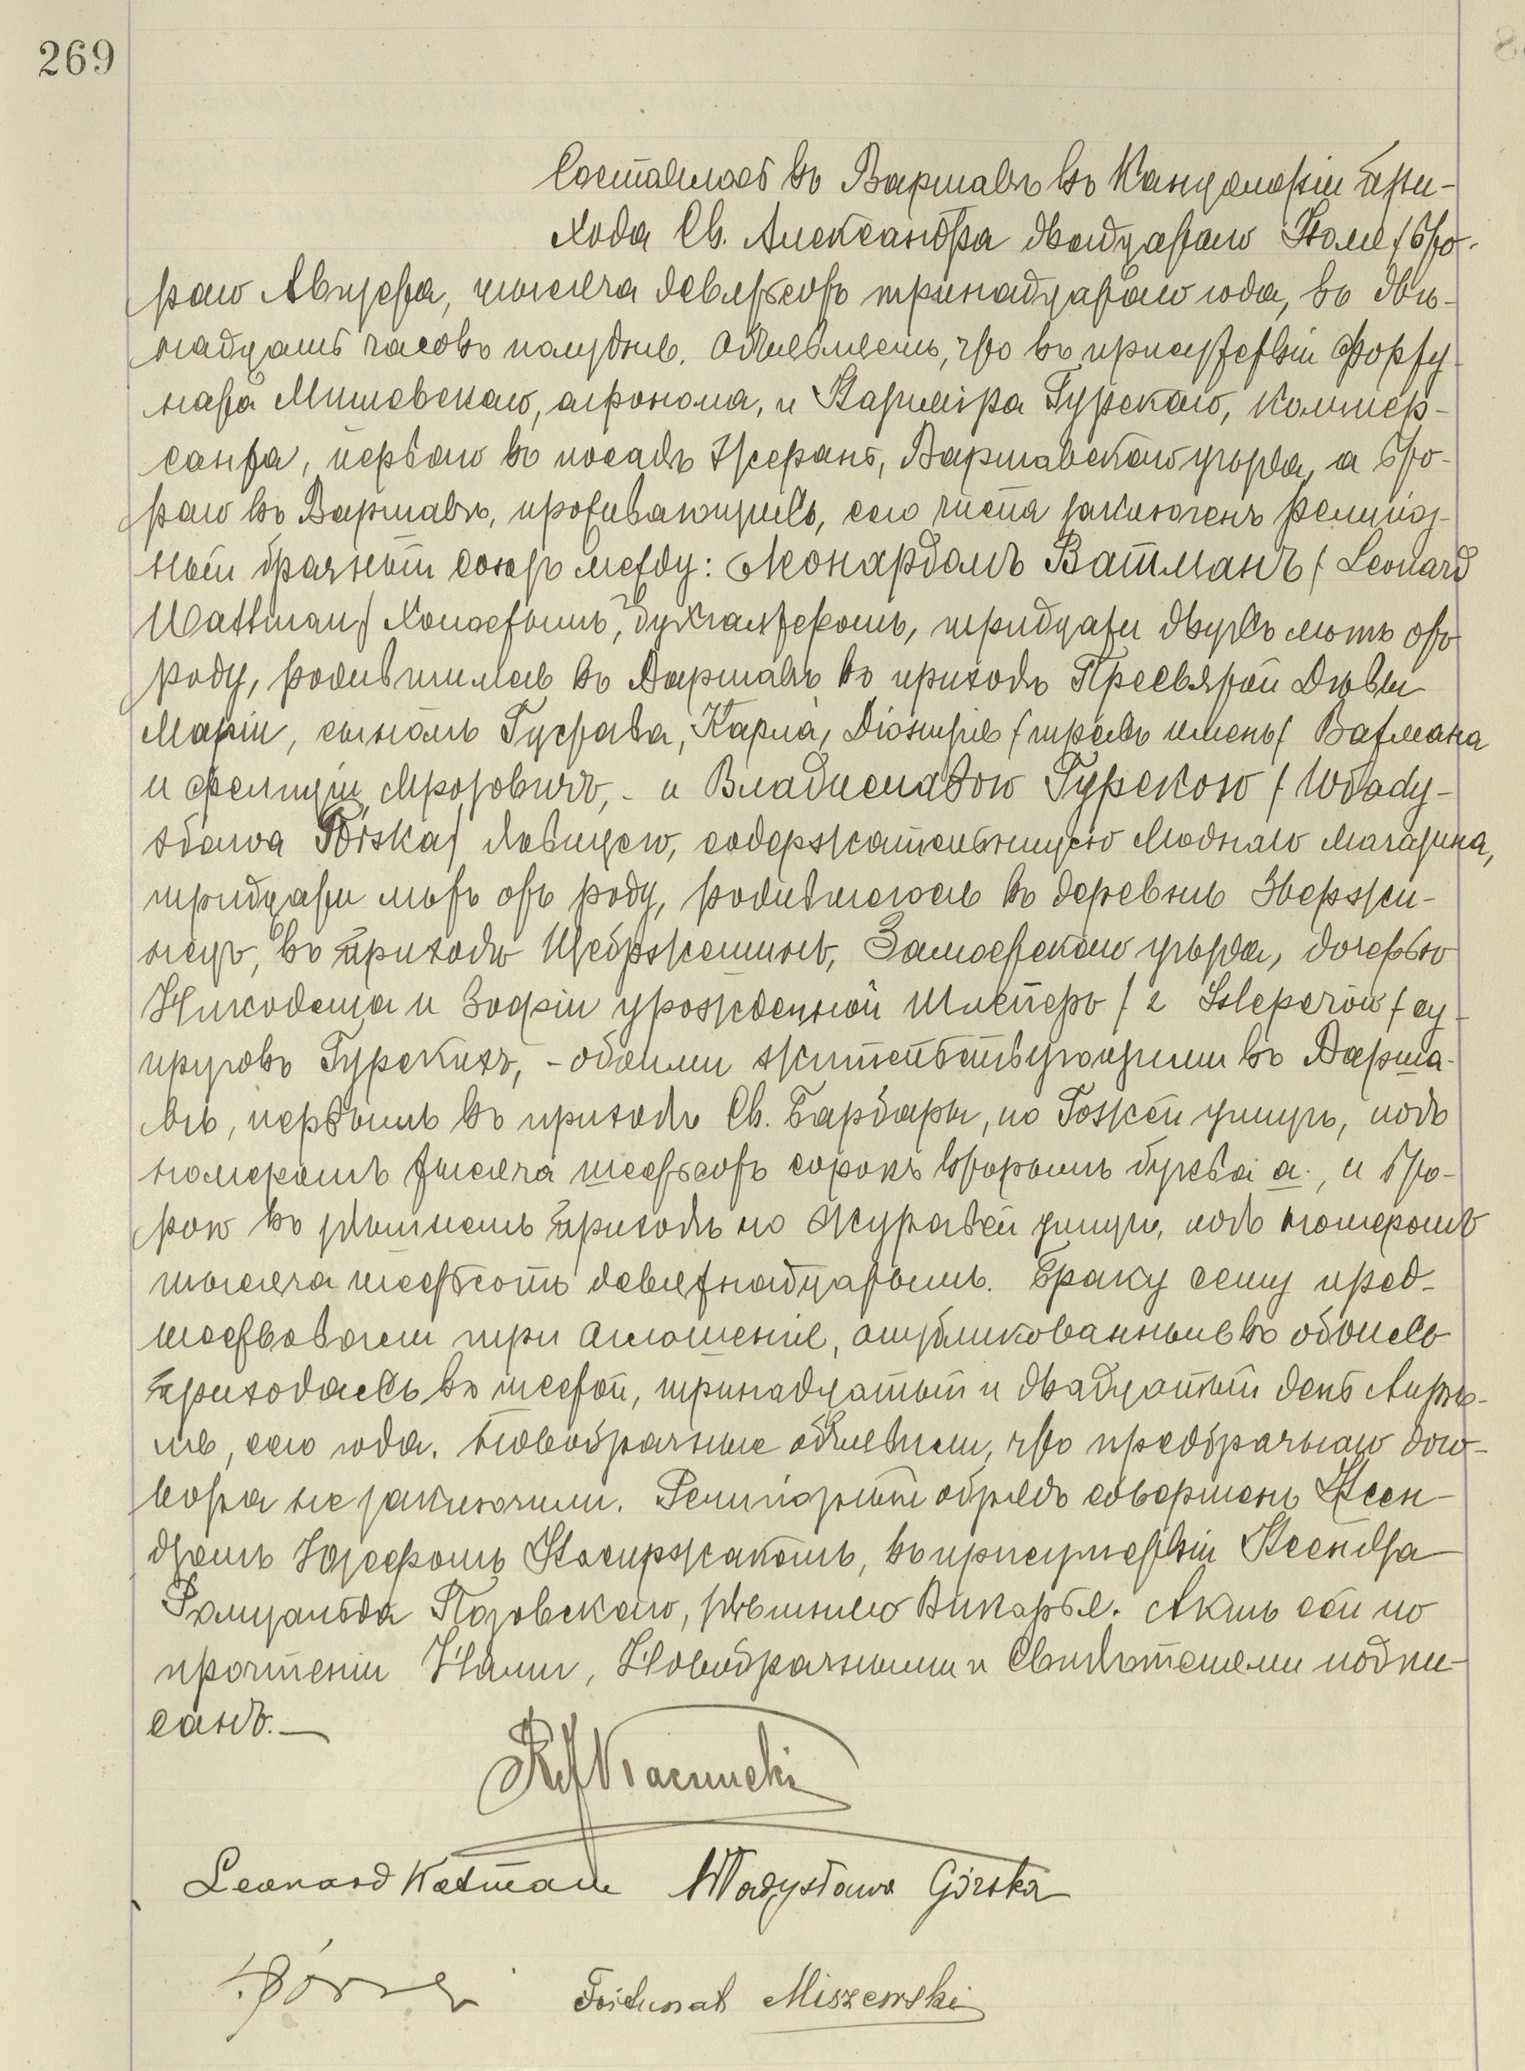 269
Состоялось въ Варшавѣ въ Канцеляріи При-
хода Св. Александра двадцатаго Іюля / вто-
раго Августа, тысяча девятьсотъ тринадцатаго года, въ двѣ-
надцать часовъ полудня. Объявляемъ, что въ присутствіи Форту-
ната Мишевскаго, агронома, и Казиміра Гурскаго, коммер-
санта, перваго въ посадѣ Жерань, Варшавскаго уѣзда, а вто-
раго въ Варшавѣ, проживающихъ, сего числа заключенъ религіоз-
ный брачный союзъ между: Леонардомъ Ватманъ / Leonard
Wattman / холостымъ, бухгалтеромъ, тридцати двухъ лѣтъ отъ
роду, родившимся въ Варшавѣ въ приходѣ Пресвятой Дѣвы
Маріи, сыномъ Густава, Карла, Діонизія / трехъ именъ / Ватмана
и Фелиціи Мрозовичъ, - и Владиславою Гурскою / Włady-
sława Górska / дѣвицею, содержательницею моднаго магазина,
тридцати лѣтъ отъ роду, родившеюся въ деревнѣ Звержи-
нецъ, въ приходѣ Щебржешинъ, Замостскаго уѣзда, дочерью
Никодема и Зофіи урожденной Шлеперъ / z Szleperów / су-
пруговъ Гурскихъ, - обоими жительствующими въ Варша-
вѣ, первымъ въ приходѣ Св. Барбары, по Гожей улицѣ, подъ
номеромъ тысяча шестьсотъ сорокъ вторымъ буква а., и вто-
рою въ здѣшнемъ приходѣ по Журавьей улицѣ, подъ номеромъ
тысяча шестьсотъ девятнадцатымъ. Браку сему пред-
шествовали три оглашенія, опубликованныя въ обоихъ
приходахъ въ шестой, тринадцатый и двадцатый день Апрѣ-
ля, сего года. Новобрачные объявили, что предбрачнаго дого-
вора не заключили. Религіозный обрядъ совершенъ Ксен-
дзомъ Юзефомъ, въ присутствіи Ксендза
Ромуальда, здѣшняго Викарья. Актъ сей по
прочтеніи Нами, Новобрачными и Свидѣтелями подпи-
санъ. —
Leonard Watman Władysława Górska
Fortunat Miszewski